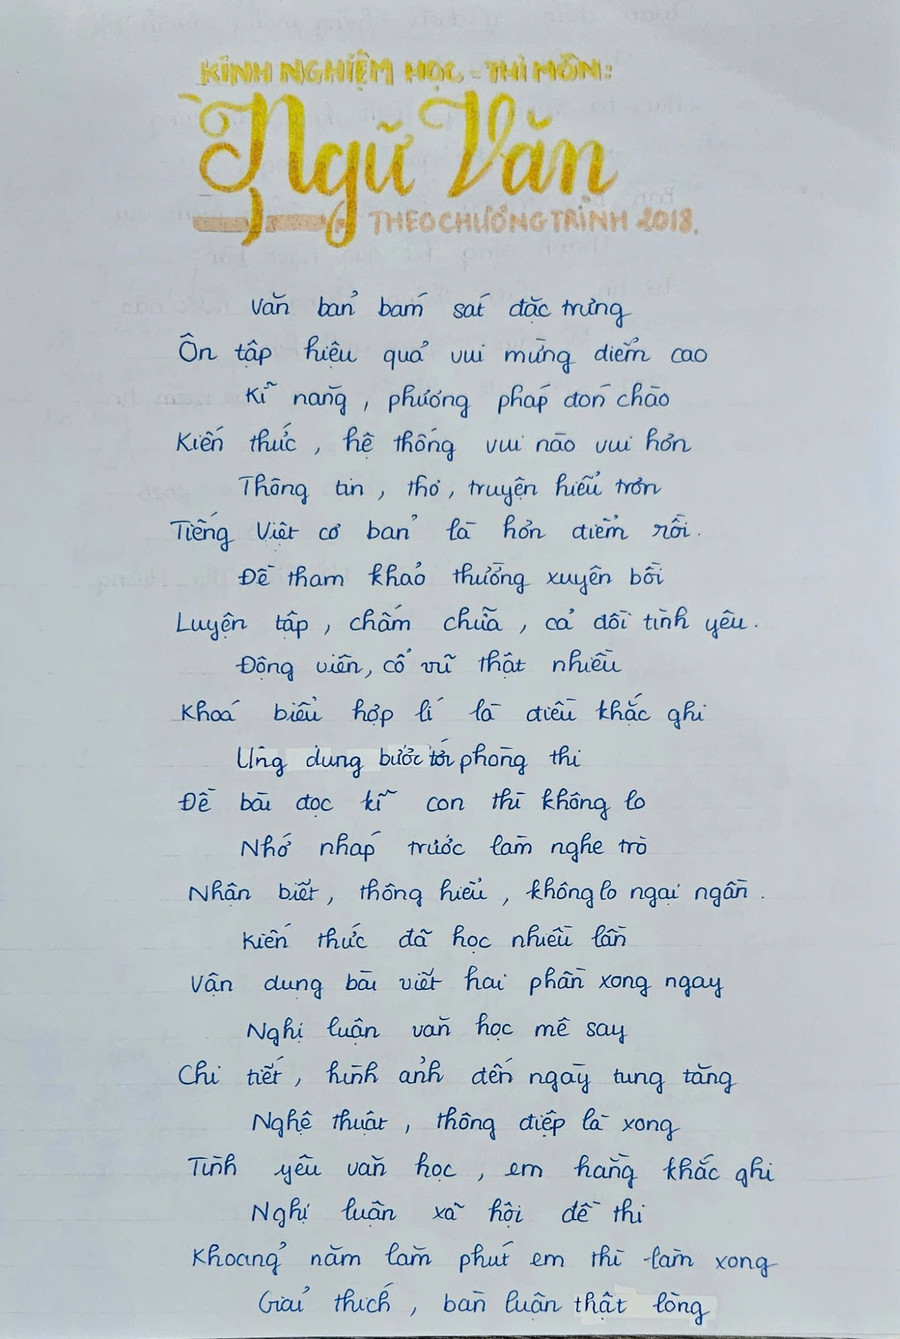 KINH NGHIỆM HỌC - THI MÔN:
Ngữ Văn
THEO CHƯƠNG TRÌNH 2018.
Văn bản bám sát đặc trưng
Ôn tập hiệu quả vui mừng điểm cao
Kĩ năng, phương pháp đón chào
Kiến thức, hệ thống vui nào vui hơn
Thông tin, thơ, truyện hiểu trơn
Tiếng Việt cơ bản là hơn điểm rồi.
Đề tham khảo thường xuyên bồi
Luyện tập, chấm chữa, cả đôi tình yêu.
Động viên, cổ vũ thật nhiều
Khoá biểu hợp lí là điều khắc ghi
Ung dung bước tới phòng thi
Đề bài đọc kĩ con thì không lo
Nhớ nháp trước làm nghe trò
Nhận biết, thông hiểu, không lo ngại ngần.
Kiến thức đã học nhiều lần
Vận dụng bài viết hai phần xong ngay
Nghị luận văn học mê say
Chi tiết, hình ảnh đến ngày tung tăng
Nghệ thuật, thông điệp là xong
Tình yêu văn học, em hằng khắc ghi
Nghị luận xã hội đề thi
Khoảng năm lăm phút em thì làm xong
Giải thích, bàn luận thật lòng